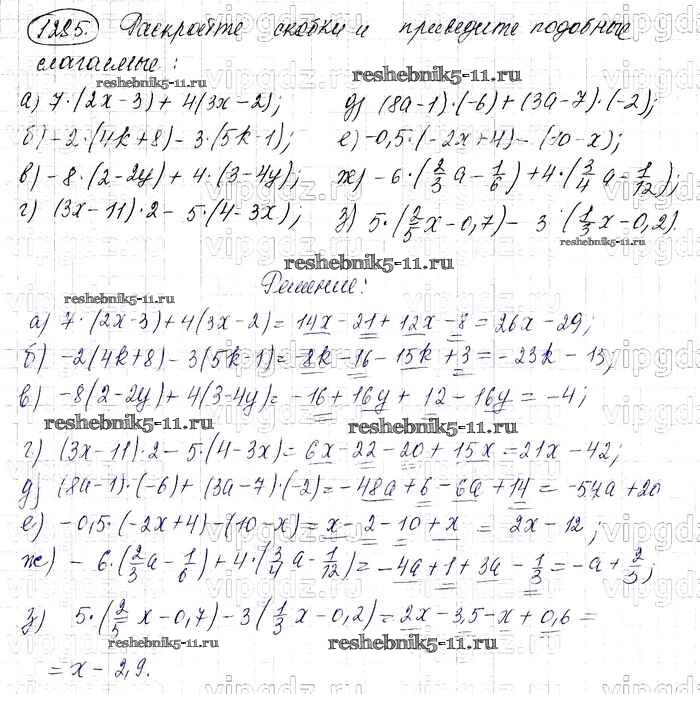 1285. Раскройте скобки и приведите подобные
слагаемые:
reshebnik5-11.ru
а) 7·(2x-3)+4(3x-2); д) (8a-1)·(-6)+(3a-7)·(-2);
б) -2·(4k+8)-3·(5k-1); е) -0,5·(-2x+4)-(10-x);
в) -8·(2-2y)+4·(3-4y); ж) -6·(2/3 a-1/6)+4·(3/4 a-1/12);
г) (3x-11)·2-5·(4-3x); з) 5·(2/5 x-0,7)-3·(1/3 x-0,2).
reshebnik5-11.ru
reshebnik5-11.ru
Решение:
reshebnik5-11.ru
а) 7·(2x-3)+4(3x-2)=14x-21+12x-8=26x-29;
б) -2(4k+8)-3(5k-1)=-8k-16-15k+3=-23k-13;
в) -8(2-2y)+4(3-4y)=-16+16y+12-16y=-4;
reshebnik5-11.ru
reshebnik5-11.ru
г) (3x-11)·2-5·(4-3x)=6x-22-20+15x=21x-42;
д) (8a-1)·(-6)+(3a-7)·(-2)=-48a+6-6a+14=-54a+20
е) -0,5·(-2x+4)-(10-x)=x-2-10+x=2x-12;
ж) -6·(2/3 a-1/6)+4·(3/4 a-1/12)=-4a+1+3a-1/3=-a+2/3;
з) 5·(2/5 x-0,7)-3(1/3 x-0,2)=2x-3,5-x+0,6=
reshebnik5-11.ru
reshebnik5-11.ru
=x-2,9.